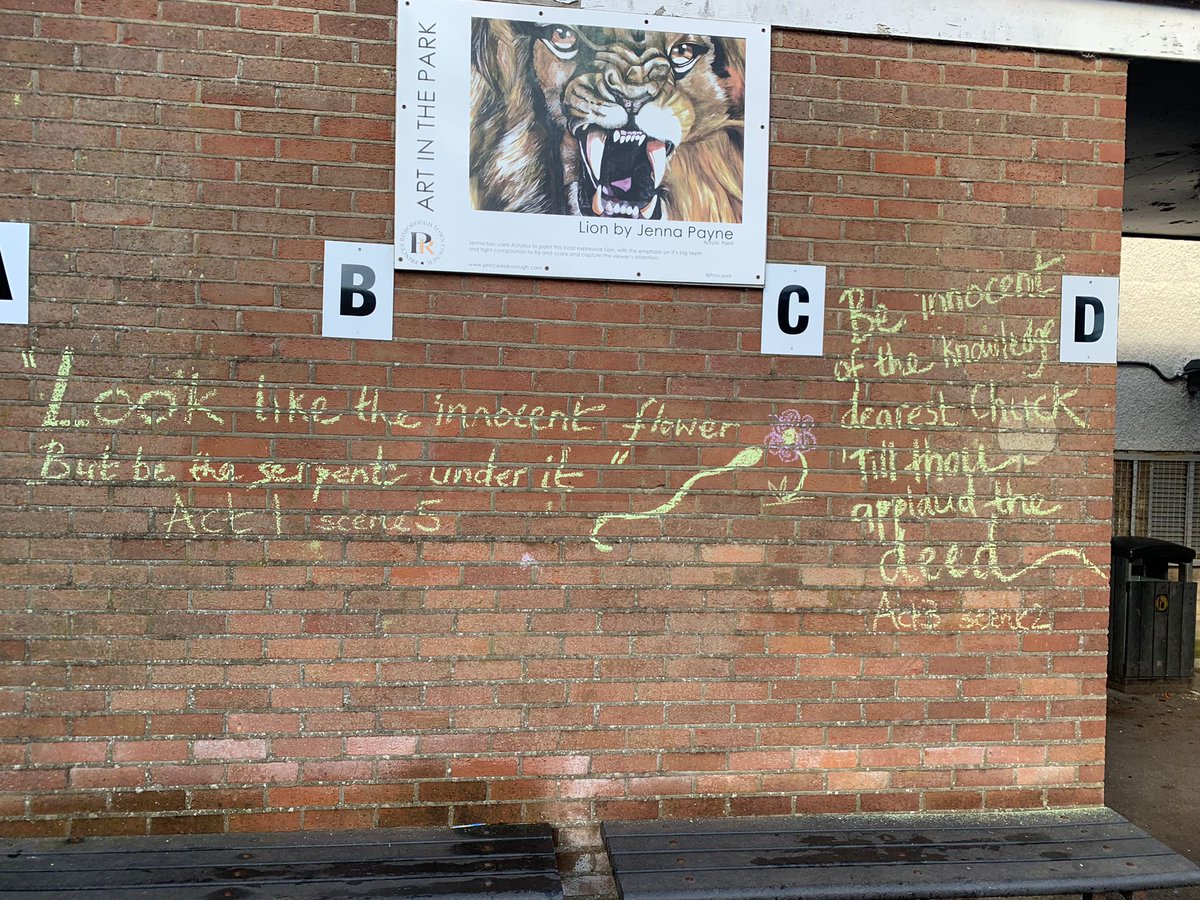 ART IN THE PARK
Lion by Jenna Payne
Acrylic Paint
Jenna has used Acrylics to paint this bold expressive Lion, with the emphasis on it's big teeth
and tight composition to try and scare and capture the viewer's attention.
www.princesrisborough.com
PRINCES RISBOROUGH TOWN COUNCIL
PR
A
B
C
D
"Look like the innocent flower
But be the serpent under it"
Act 1 scene 5
Be innocent
of the knowledge
dearest Chuck
'Till thou
applaud the
deed
Act 3 scene 2